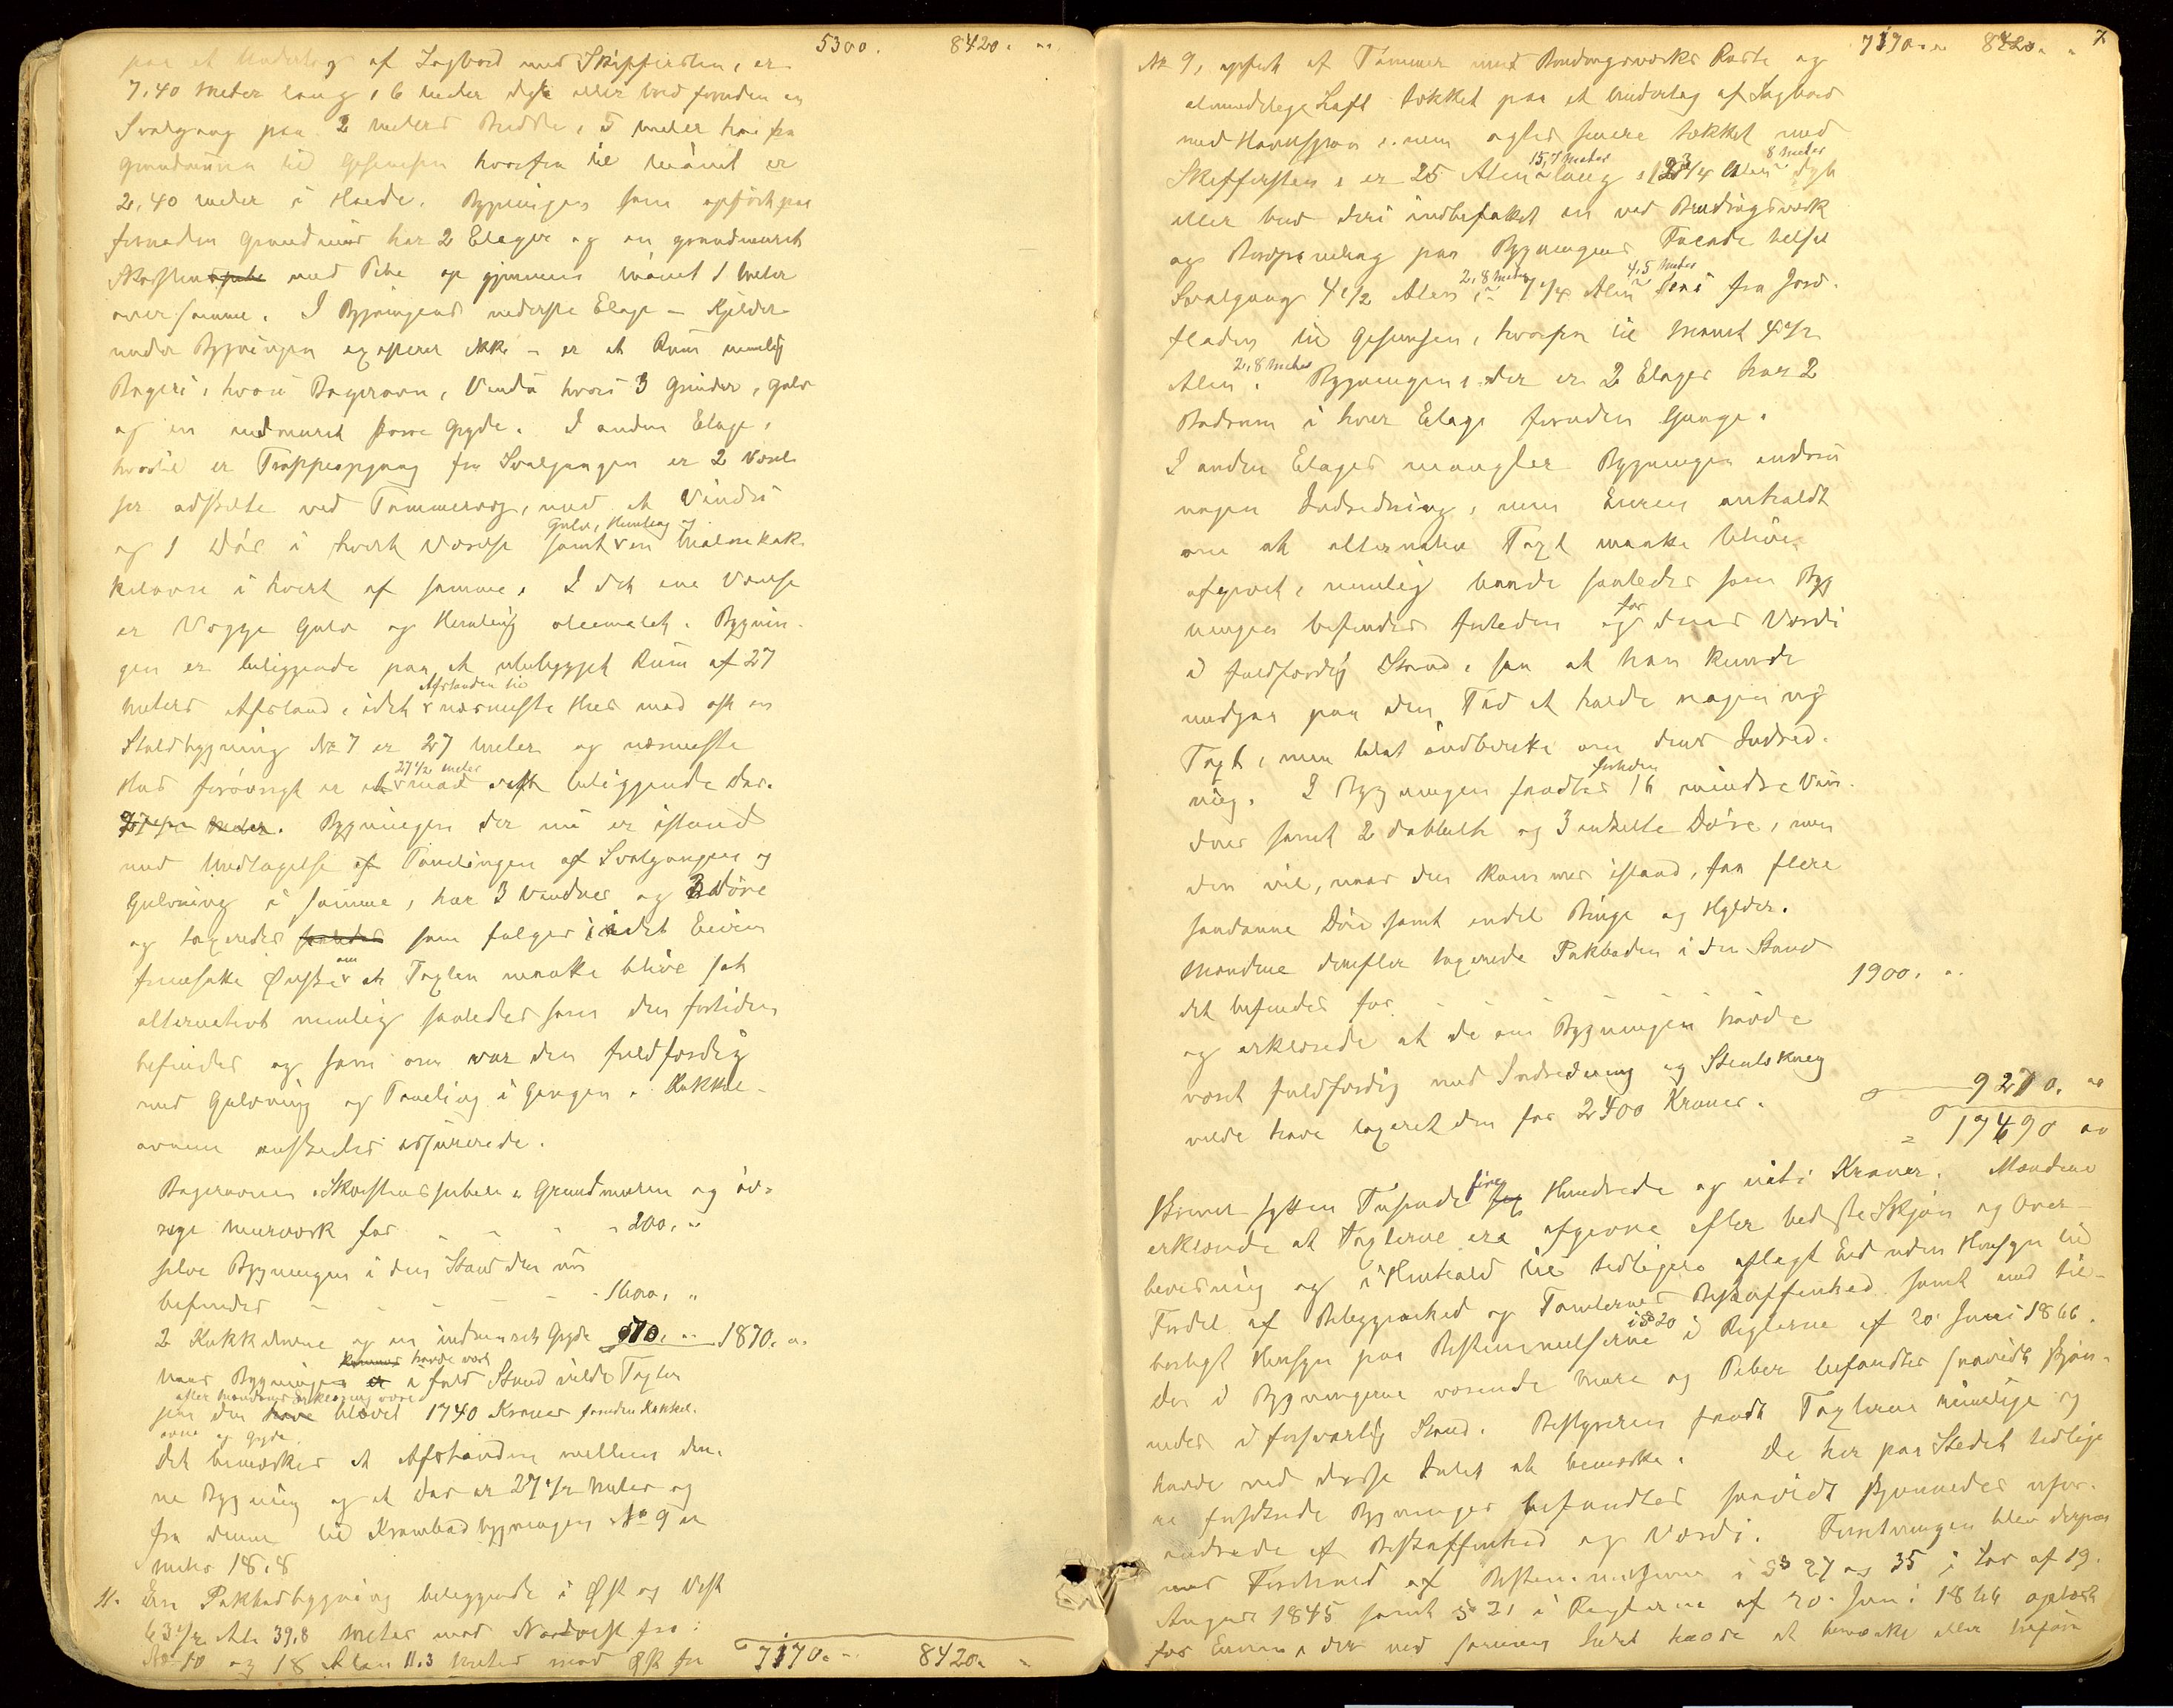 5300. 8420. "
paa et Undertag af Sagbord med Skiffersten, er
7,40 Meter lang, 6 Meter dyb eller bred foruden en
Svalgang paa 2 Meters Bredde, 5 Meter høi fra
Grundmuren til Gesimsen hvorfra til Mønet er
2,40 Meter i Høide. Bygningen som opført paa
foruden Grundmur har 2 Etager og en grundmuret
Skorsten med Pibe op gjennem Mønet 1 Meter
over samme. I Bygningens nederste Etage – Kjelder
under Bygningen existerer ikke – er et Rum nemlig
Bageri, hvori Bagerovn, Vindu hvori 3 Grinder, Gulv
og en indmuret større Gryde. I anden Etage,
hvortil er Trappeopgang fra Svalgangen er 2 Værel-
ser adskilte ved Tømmervæg, med et Vindu
Gulv, Himling og
og 1 Dør i hvert Værelse samt en
kelovn i hvert af samme. I det ene Værelse
er Vægge Gulv og Himling oliemalet. Bygnin-
gen er beliggende paa et ubebygget Rum af 27
Afstanden til
Meters Afstand, idet nærmeste Hus mod øst en
Staldbygning No 7 er 27 Meter og nærmeste
27 1/2 Meter
Hus forøvrigt er et mod vest beliggende Das.
Bygningen der nu er istand
med Undtagelse af Panelingen af Svalgangen og
Gulvning i samme, har 3 Vinduer og 3 Døre
og taxeredes som følger idet Eieren
om
fremsatte Ønske at Taxten maatte blive sat
alternativt nemlig saaledes som den fortiden
befindes og som om var den fuldfærdig
med Gulvning og Paneling i Gangen. Kakkel-
ovnene ønskedes assurerede.
Bagerovnen, Skorstenspiben, Grundmuren og øv-
rige Murværk for - - - - 200. "
selve Bygningen i den Stand den nu
befindes - - - - - 1600. "
2 Kakkelovne og en indmuret Gryde 70. " 1870. "
havde vært
naar Bygningen i fuld Stand vilde Taxten
efter Mændenes Erklæring være
paa den blevet 1740 Kroner foruden Kakkel-
ovne og Gryde.
Det bemærkes at Afstanden mellem den-
ne Bygning og et Das er 27 1/2 Meter og
fra denne til Krambodbygningen No 9 er
Meter 18,8
11. En Pakbodbygning beliggende i Øst og Vest
63 1/2 Alen 39,8 Meter mod Nordvest fra
No 10 og 18 Alen 11.3 Meter mod Øst fra 7170. " 8420. "
7170. " 8420. " 7
No 9, opført af Tømmer med Bindingsværks Røste og
almindelige Loft tækket paa et Undertag af Sagbord
med Høvlspon, men agtes senere tækket med
15,7 Meter 8 Meter
Skiffersten, er 25 Alen lang, 12 3/4 Alen dyb
eller bred deri indbefattet en ved Bindingsværk
og Bordpaneling paa Bygningens Facade
2,8 Meter 4,5 Meter
Svalgang 4 1/2 Alen, 7 1/4 Alen høi fra Jord-
fladen til Gesimsen, hvorfra til Mønet 4 1/2
2,8 Meter
Alen. Bygningen, der er 2 Etager har 2
Bodrum i hver Etage foruden Gange.
I anden Etage mangler Bygningen endnu
nogen Indredning, men Eieren anholdt
om at alternativ Taxt maatte blive
afgivet, nemlig baade saaledes som Byg
for
ningen befindes fortiden og dens Værdi
i fuldfærdig Stand, saa at han kunde
undgaa paa den Tid at holde nogen ny
Taxt, men blot indberette om dens Indred-
fortiden
ning. I Bygningen fandtes 16 mindre Vin-
duer samt 2 dobbelte og 3 enkelte Døre, men
den vil, naar den kommer istand, faa flere
saadanne Døre samt endel Binge og Hylder.
Mændene derefter taxerede Pakboden i den Stand
det befindes for - - - - - 1900. "
og erklærede at de om Bygningen havde
været fuldfærdig med Indredning og Stentækning
vilde have taxeret den for 2400 Kroner.
9270. "
= 17690 "
fire
Skriver sytten Tusinde Hundrede og niti Kroner. Mændene
erklærede at Taxterne ere afgivne efter bedste Skjøn og Over-
bevisning og i Henhold til tidligere aflagt Eed uden Hensyn til
Fordel af Beliggenhed og Tomternes Beskaffenhed samt med til-
i § 20
børligt Hensyn paa Bestemmelserne i Reglerne af 20 Juni 1866.
De i Bygningerne værende Mure og Piber befandtes saavidt skjøn-
nedes i forsvarlig Stand. Bestyreren fandt Taxterne rimelige og
havde ved disse Intet at bemærke. De her paa Stedet tidlige
re forsikrede Bygninger befandtes saavidt skjønnedes ufor-
andrede af Beskaffenhed og Værdi. Forretningen blev derpaa
med Forehold af Bestemmelserne i §§ 27 og 35 i Lov af 19.
August 1845 samt § 21 i Reglerne af 20. Juni 1866 oplæst
for Eieren, der ved samme Intet havde at bemærke eller tilføie